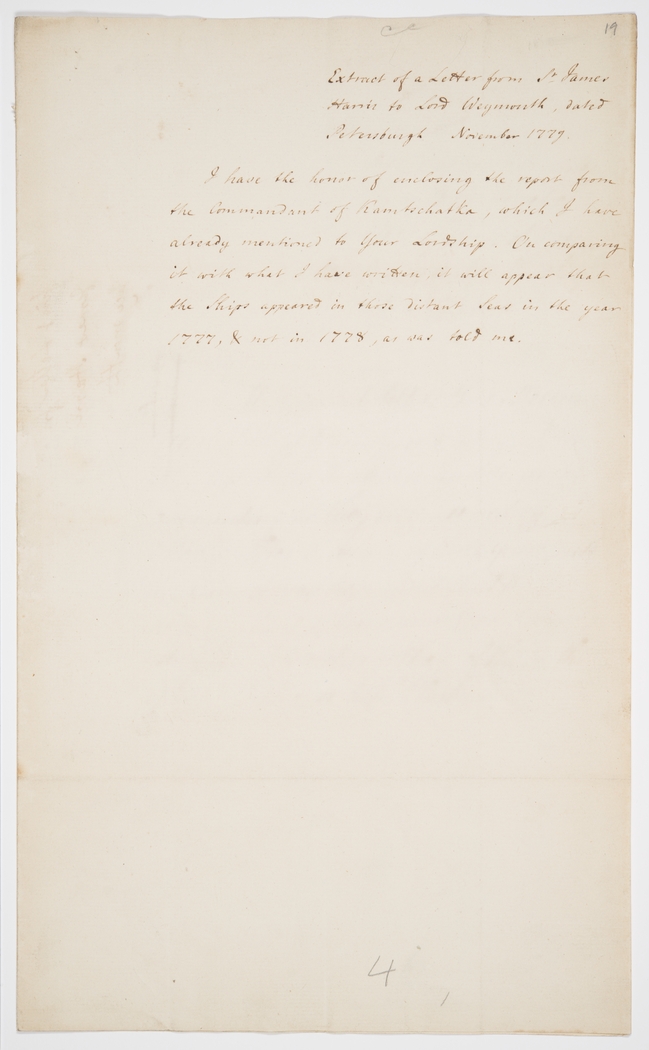 19
Extract of a Letter from Sr. James
Harris to Lord Weymouth, dated
Petersburgh November 1779.
I have the honor of enclosing the report from
the Commandant of Kamtschatka, which I have
already mentioned to Your Lordship. On comparing
it with what I have written, it will appear that
the Ships appeared in those distant Seas in the year
1777, & not in 1778, as was told me.
4